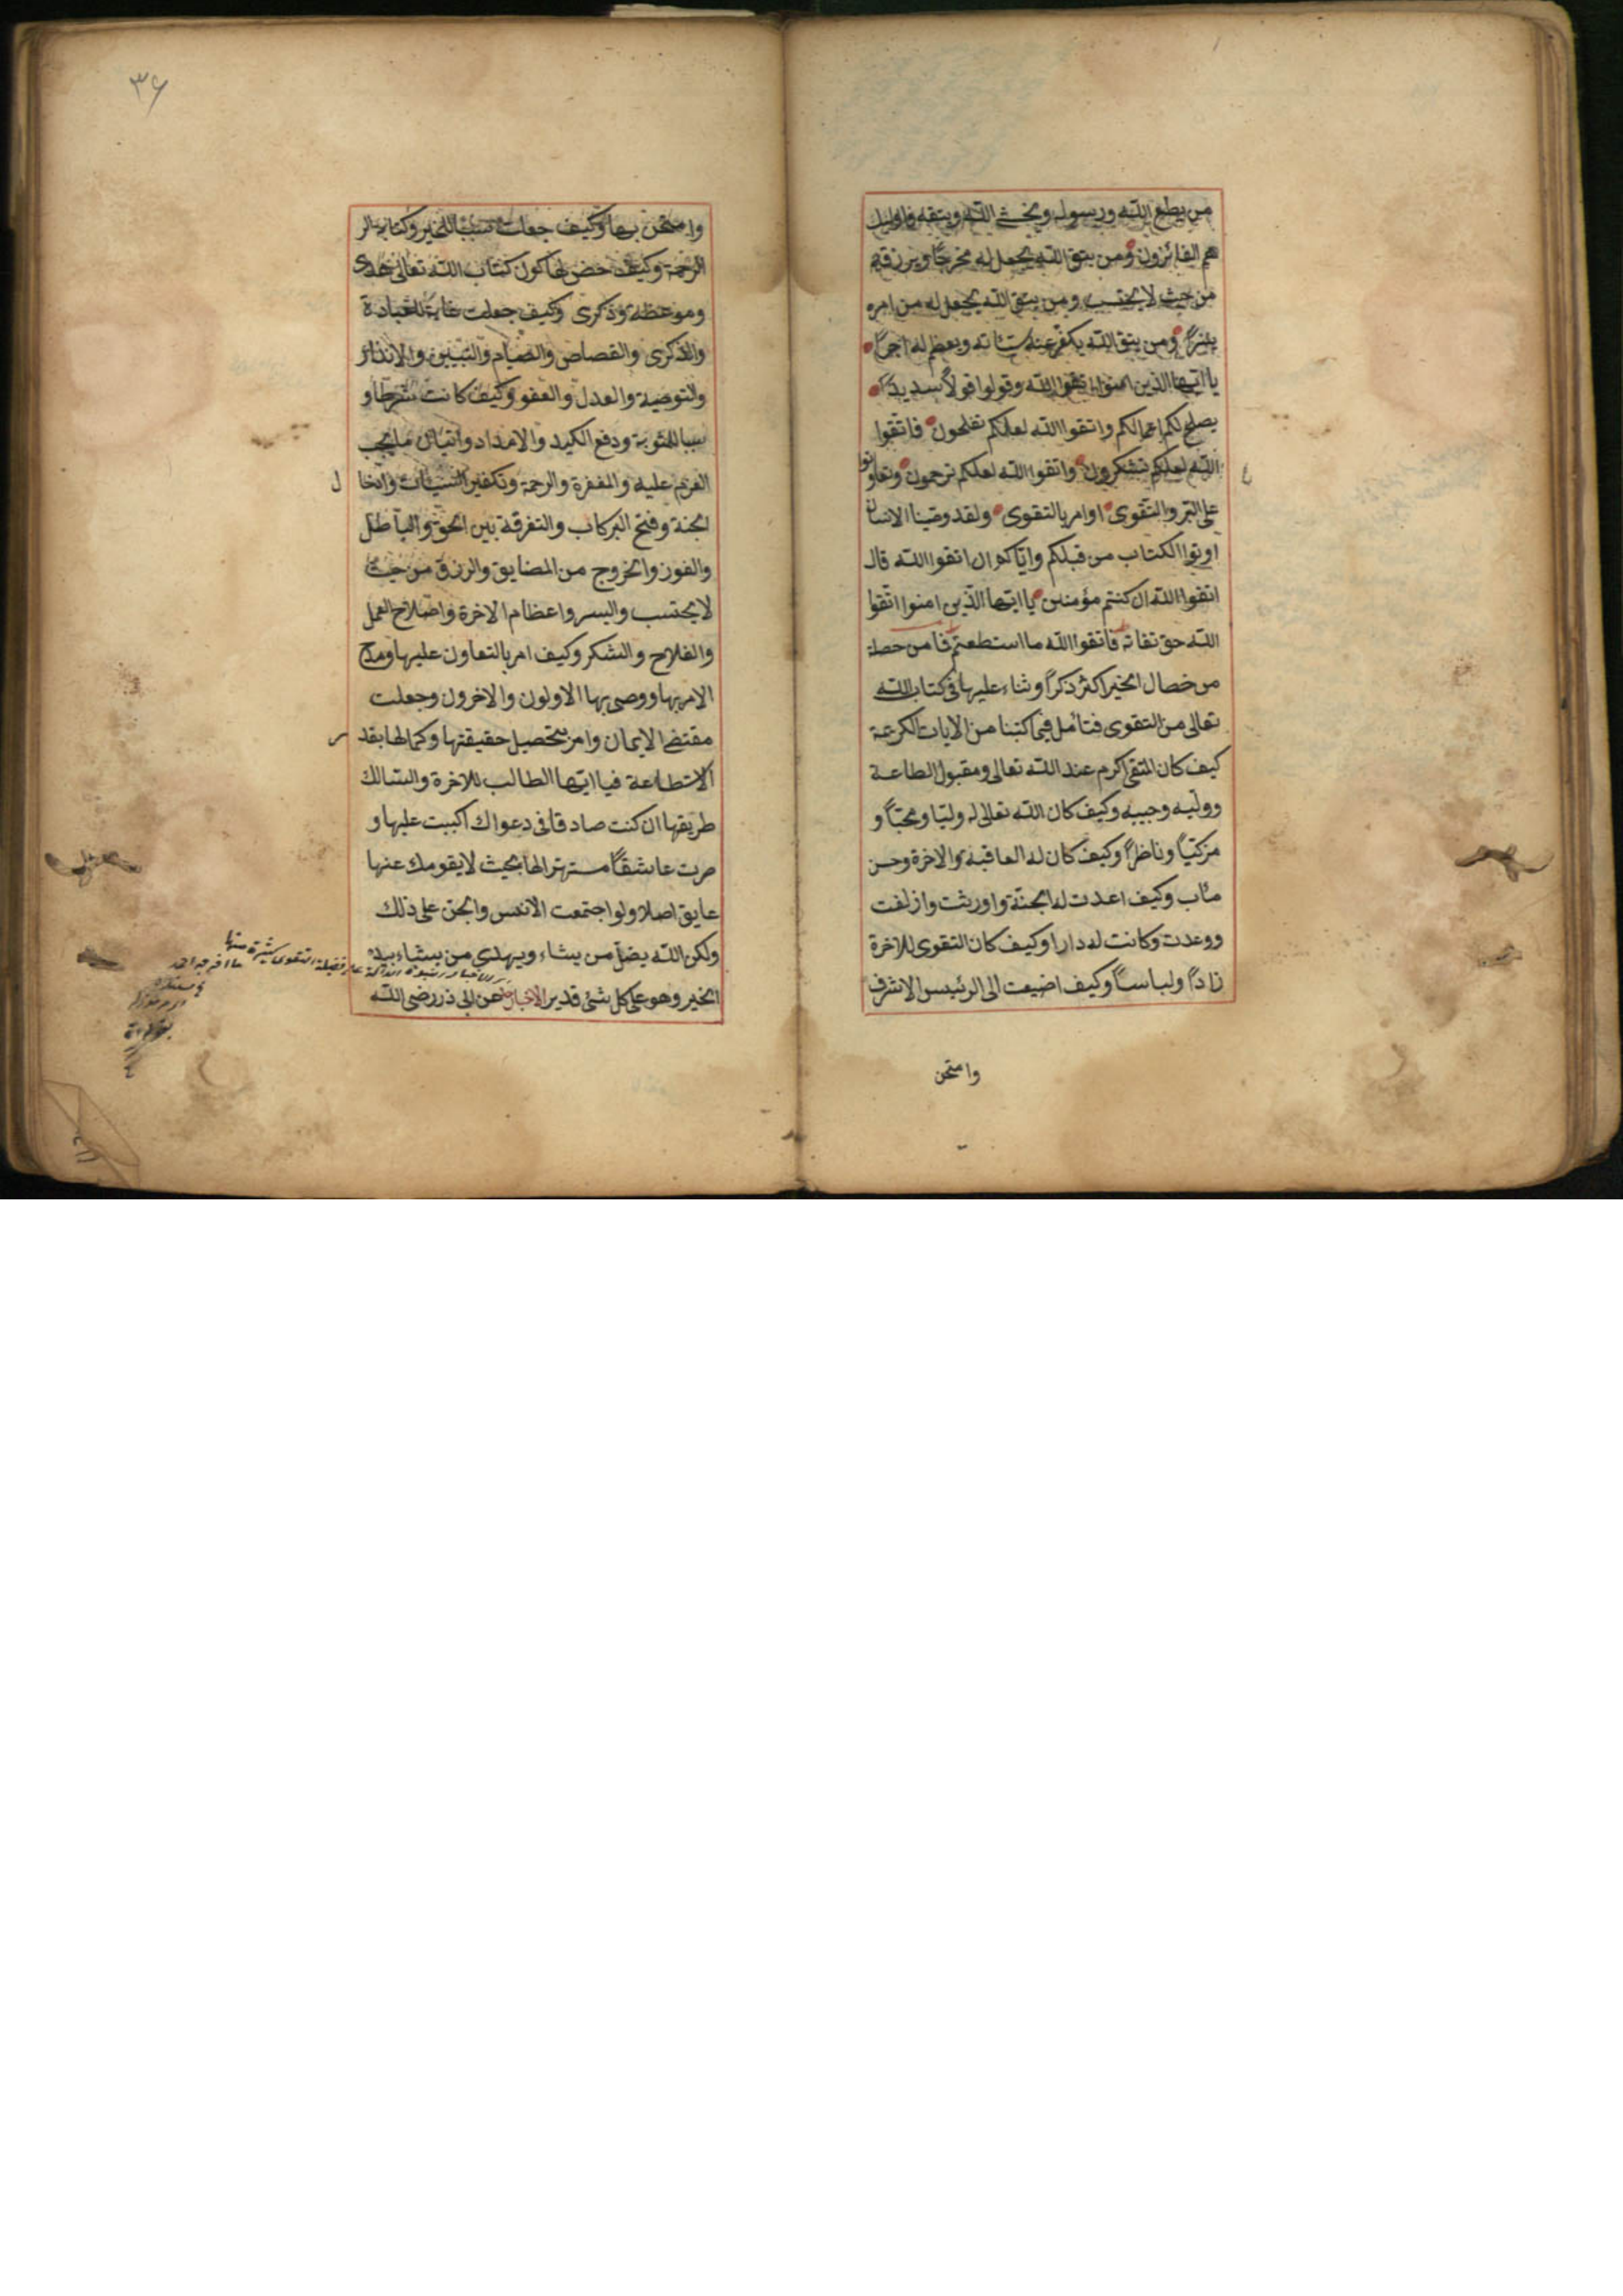 من يطع الله ورسوله ويخشى الله ويتقه فاولئك
هم الفائزون ومن يتق الله يجعل له مخرجا ويرزقه
من حيث لا يحتسب ومن يتق الله يجعل له من امره
يسرا ومن يتق الله يكفر عنه سيئاته ويعظم له اجرا
يا ايها الذين امنوا اتقوا الله وقولوا قولا سديدا
يصلح لكم اعمالكم واتقوا الله لعلكم تفلحون فاتقوا
الله لعلكم تشكرون واتقوا الله لعلكم ترحمون وتعاونوا
على البر والتقوى او امر بالتقوى ولقد وصينا الانسان
اوتوا الكتاب من قبلكم واياكم ان اتقوا الله قال
اتقوا الله ان كنتم مؤمنين يا ايها الذين امنوا اتقوا
الله حق تقاته فاتقوا الله ما استطعتم فما من خصلة
من خصال الخير اكثر ذكرا وثناء عليها في كتاب الله
تعالى من التقوى فتأمل فيما كتبنا من الايات الكريمة
كيف كان المتقي اكرم عند الله تعالى ومقبول الطاعة
ووليه وحبيبه وكيف كان الله تعالى له وليا ومحبا و
مزكيا وناظرا وكيف كان له العاقبة والاخرة وحسن
مأب وكيف اعدت له الجنة واورثت وازلفت
ووعدت وكانت له دارا وكيف كان التقوى للاخرة
زادا ولباسا وكيف اضيفت الى الرئيس الاشرف
وامتحن
٣٦
وامتحن بها وكيف جعلت سببا للخير وكتابة الر
الرحمة وكيف خص بها كون كتاب الله تعالى هدى
وموعظة وذكرى وكيف جعلت غاية للعبادة
والذكرى والقصاص والصيام والتبيين والانذار
والتوصية والعدل والعفو وكيف كانت شرطا و
سببا للمثوبة ودفع الكيد والامداد واتيان ما يجب
العزم عليه والمغفرة والرحمة وتكفير السيئات وادخال
الجنة وفتح البركات والتفرقة بين الحق والباطل
والفوز والخروج من المضايق والرزق من حيث
لا يحتسب واليسر واعظام الاخرة واصلاح العمل
والفلاح والشكر وكيف امر بالتعاون عليها ومدح
الامر بها ووصى بها الاولون والاخرون وجعلت
مقتضى الايمان وامر بتحصيل حقيقتها وكمالها بقدر
الاستطاعة فيا ايها الطالب للاخرة والسالك
طريقها ان كنت صادقا في دعواك اكببت عليها و
صرت عاشقا مستهترا لها بحيث لا يقومك عنها
عايق اصلا ولو اجتمعت الانس والجن على ذلك
ولكن الله يضل من يشاء ويهدي من يشاء بيده
الخير وهو على كل شئ قدير الاخبار عن ابي ذر رضى الله